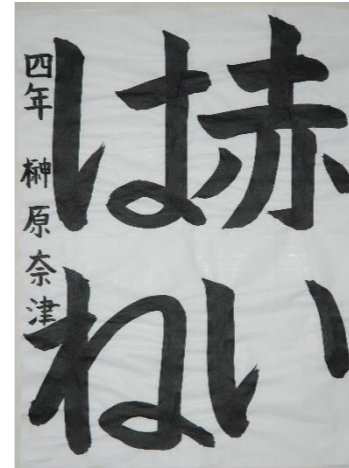 赤い
はね
四年 榊原奈津